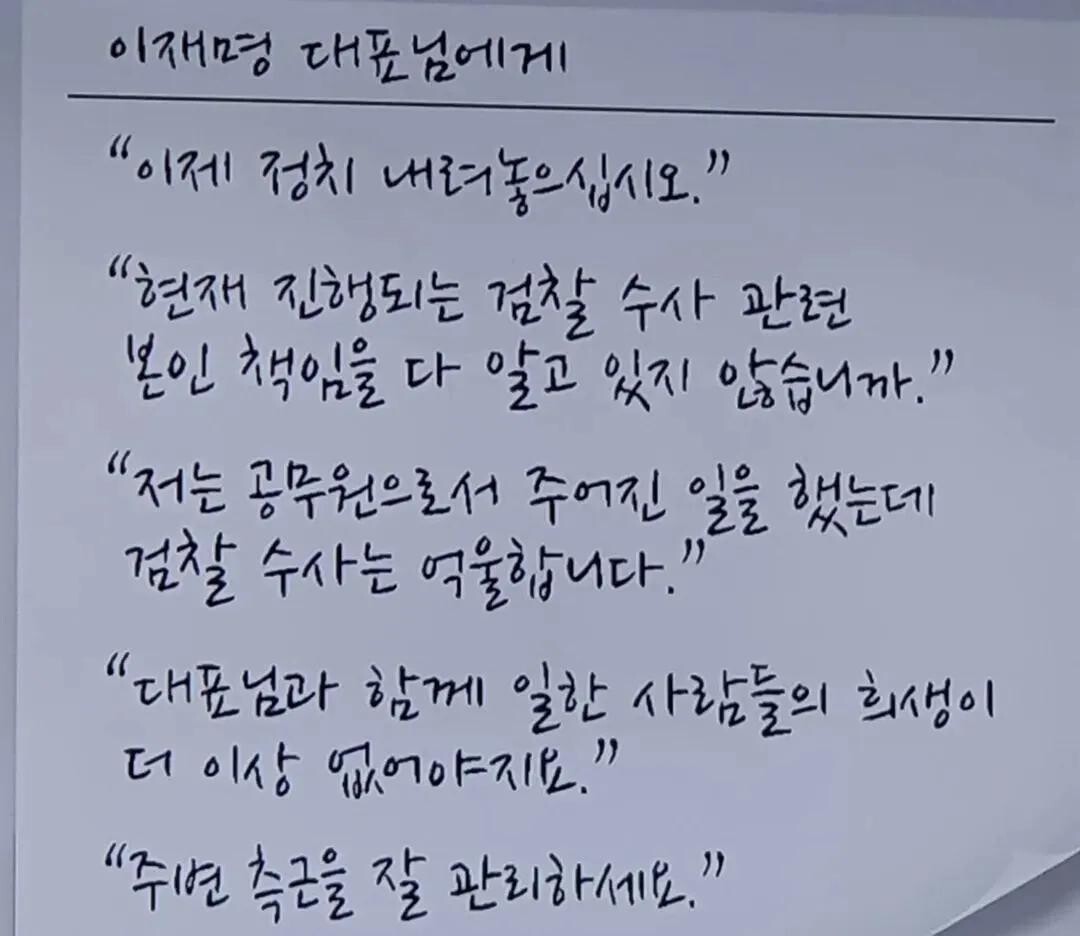 이재명 대표님에게
“이제 정치 내려놓으십시오.”
“현재 진행되는 검찰 수사 관련
본인 책임을 다 알고 있지 않습니까.”
“저는 공무원으로서 주어진 일을 했는데
검찰 수사는 억울합니다.”
“대표님과 함께 일한 사람들의 희생이
더 이상 없어야지요.”
“주변 측근을 잘 관리하세요.”